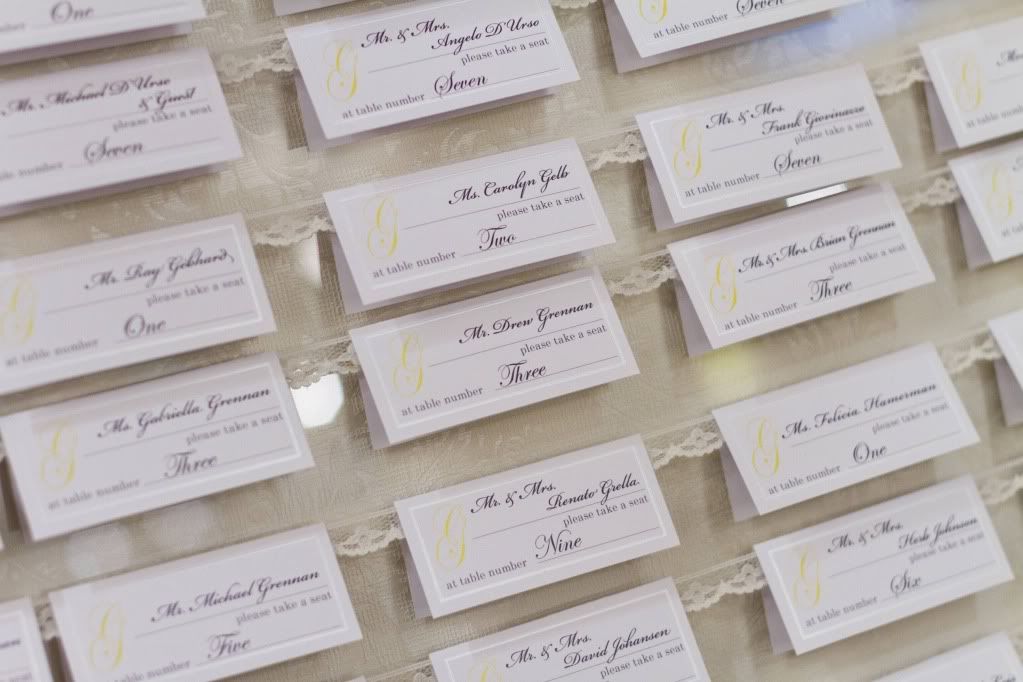 One
Mr. Michael D'Urso
& Guest
please take a seat
at table number Seven
Mr. Ray Gebhard
please take a seat
at table number One
G
Ms. Gabriella Grennan
please take a seat
at table number Three
G
Mr. Michael Grennan
please take a seat
at table number Five
G
Mr. & Mrs.
Angelo D'Urso
please take a seat
at table number Seven
G
Ms. Carolyn Gelb
please take a seat
at table number Two
G
Mr. Drew Grennan
please take a seat
at table number Three
G
Mr. & Mrs.
Renato Grella
please take a seat
at table number Nine
Mr. & Mrs.
David Johansen
please take a seat
at table number Seven
G
Mr. & Mrs.
Frank Giovinazzo
please take a seat
at table number Seven
G
Mr. & Mrs. Brian Grennan
please take a seat
at table number Three
G
Ms. Felicia Hamerman
please take a seat
at table number One
G
Mr. & Mrs.
Herb Johnson
please take a seat
at table number Six
at table number
at table number